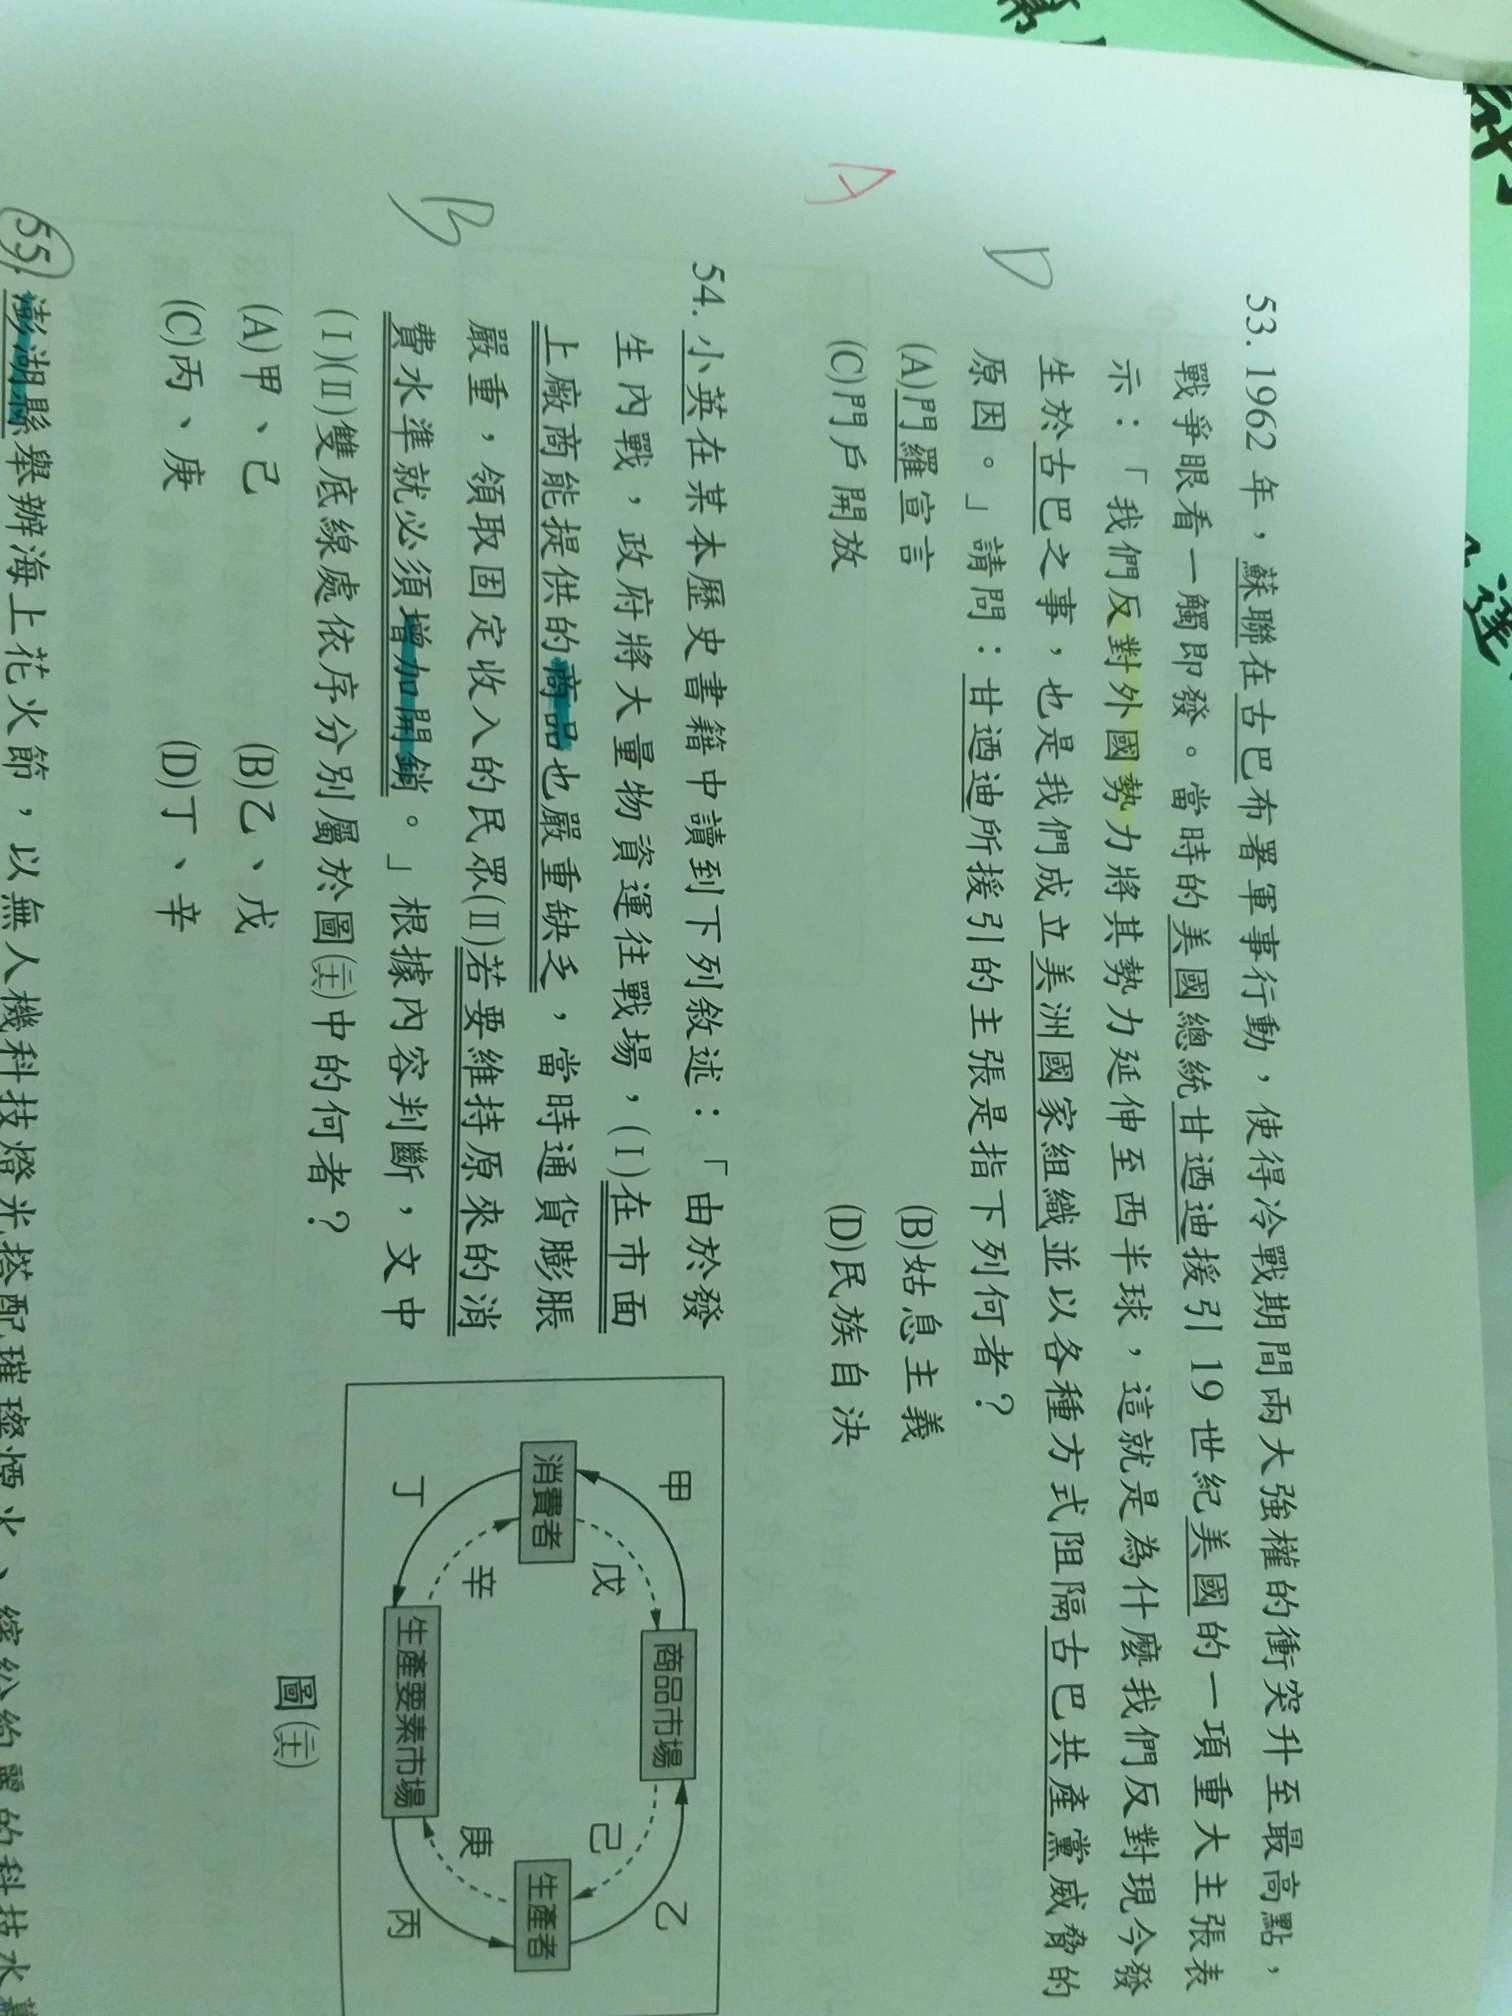 53. 1962 年，蘇聯在古巴布署軍事行動，使得冷戰期間兩大強權的衝突升至最高點，
戰爭眼看一觸即發。當時的美國總統甘迺迪援引 19 世紀美國的一項重大主張表
示：「我們反對外國勢力將其勢力延伸至西半球，這就是為什麼我們反對現今發
生於古巴之事，也是我們成立美洲國家組織並以各種方式阻隔古巴共產黨威脅的
原因。」請問：甘迺迪所援引的主張是指下列何者？
D
(A)門羅宣言 (B)姑息主義
(C)門戶開放 (D)民族自決
A
54. 小英在某本歷史書籍中讀到下列敘述：「由於發
生內戰，政府將大量物資運往戰場，(I)在市面
上廠商能提供的商品也嚴重缺乏，當時通貨膨脹
嚴重，領取固定收入的民眾(II)若要維持原來的消
費水準就必須增加開銷。」根據內容判斷，文中
(I)(II)雙底線處依序分別屬於圖(三)中的何者？
B
(A)甲、己 (B)乙、戊
(C)丙、庚 (D)丁、辛
甲
乙
丙
丁
戊
己
庚
辛
商品市場
消費者
生產者
生產要素市場
55. 澎湖縣舉辦海上花火節，以無人機科技燈光搭配璀璨煙火、繽紛絢麗的科技水